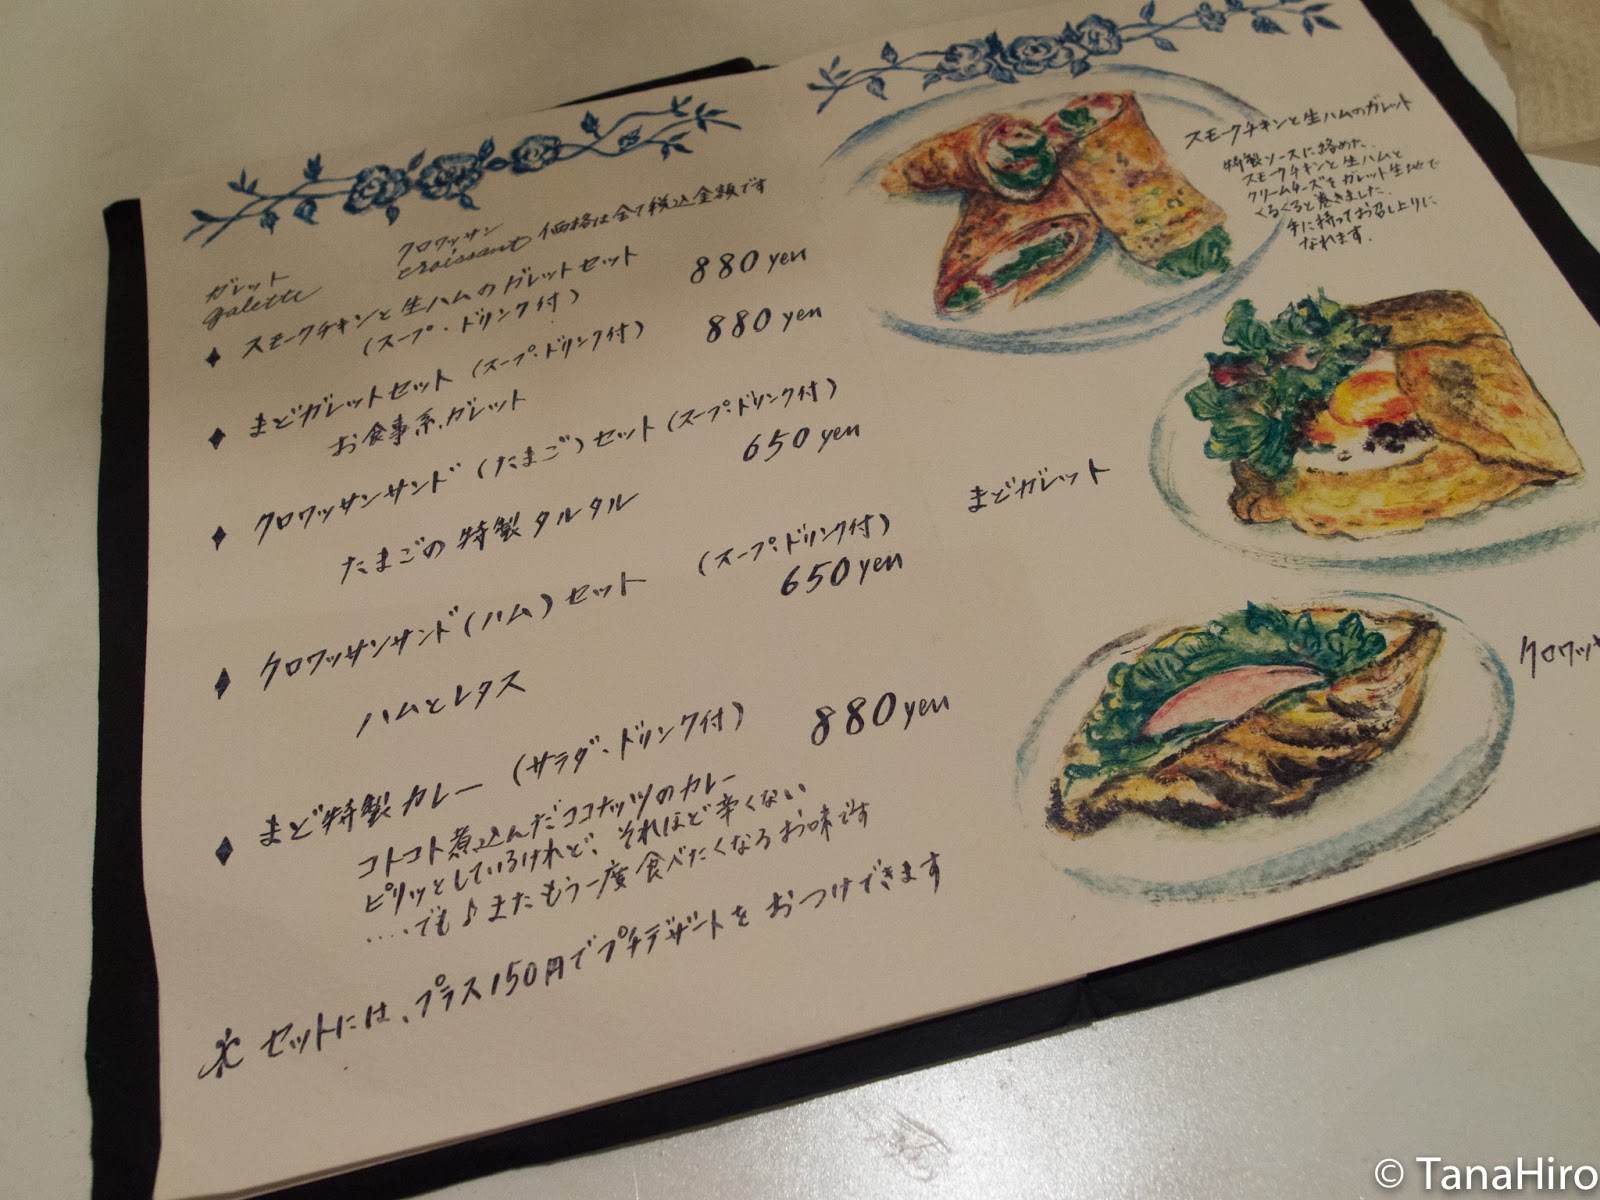 ガレット
galette
クロワッサン
croissant 価格は全て税込金額です
◆ スモークチキンと生ハムのガレットセット 880 yen
(スープ・ドリンク付)
◆ まどガレットセット (スープ・ドリンク付) 880 yen
お食事系ガレット
◆ クロワッサンサンド (たまご) セット (スープ・ドリンク付)
650 yen
たまごの特製タルタル
◆ クロワッサンサンド (ハム) セット (スープ・ドリンク付)
650 yen
ハムとレタス
◆ まど特製カレー (サラダ・ドリンク付) 880 yen
コトコト煮込んだココナッツのカレー
ピリッとしているけれど、それほど辛くない
....でも♪またもう一度食べたくなるお味です
※ セットには、プラス150円でプチデザートをおつけできます
スモークチキンと生ハムのガレット
特製ソースに絡めた、
スモークチキンと生ハムと
クリームチーズをガレット生地で
くるくると巻きました。
手に持ってお召し上りに
なれます。
まどガレット
クロワッサ
© TanaHiro